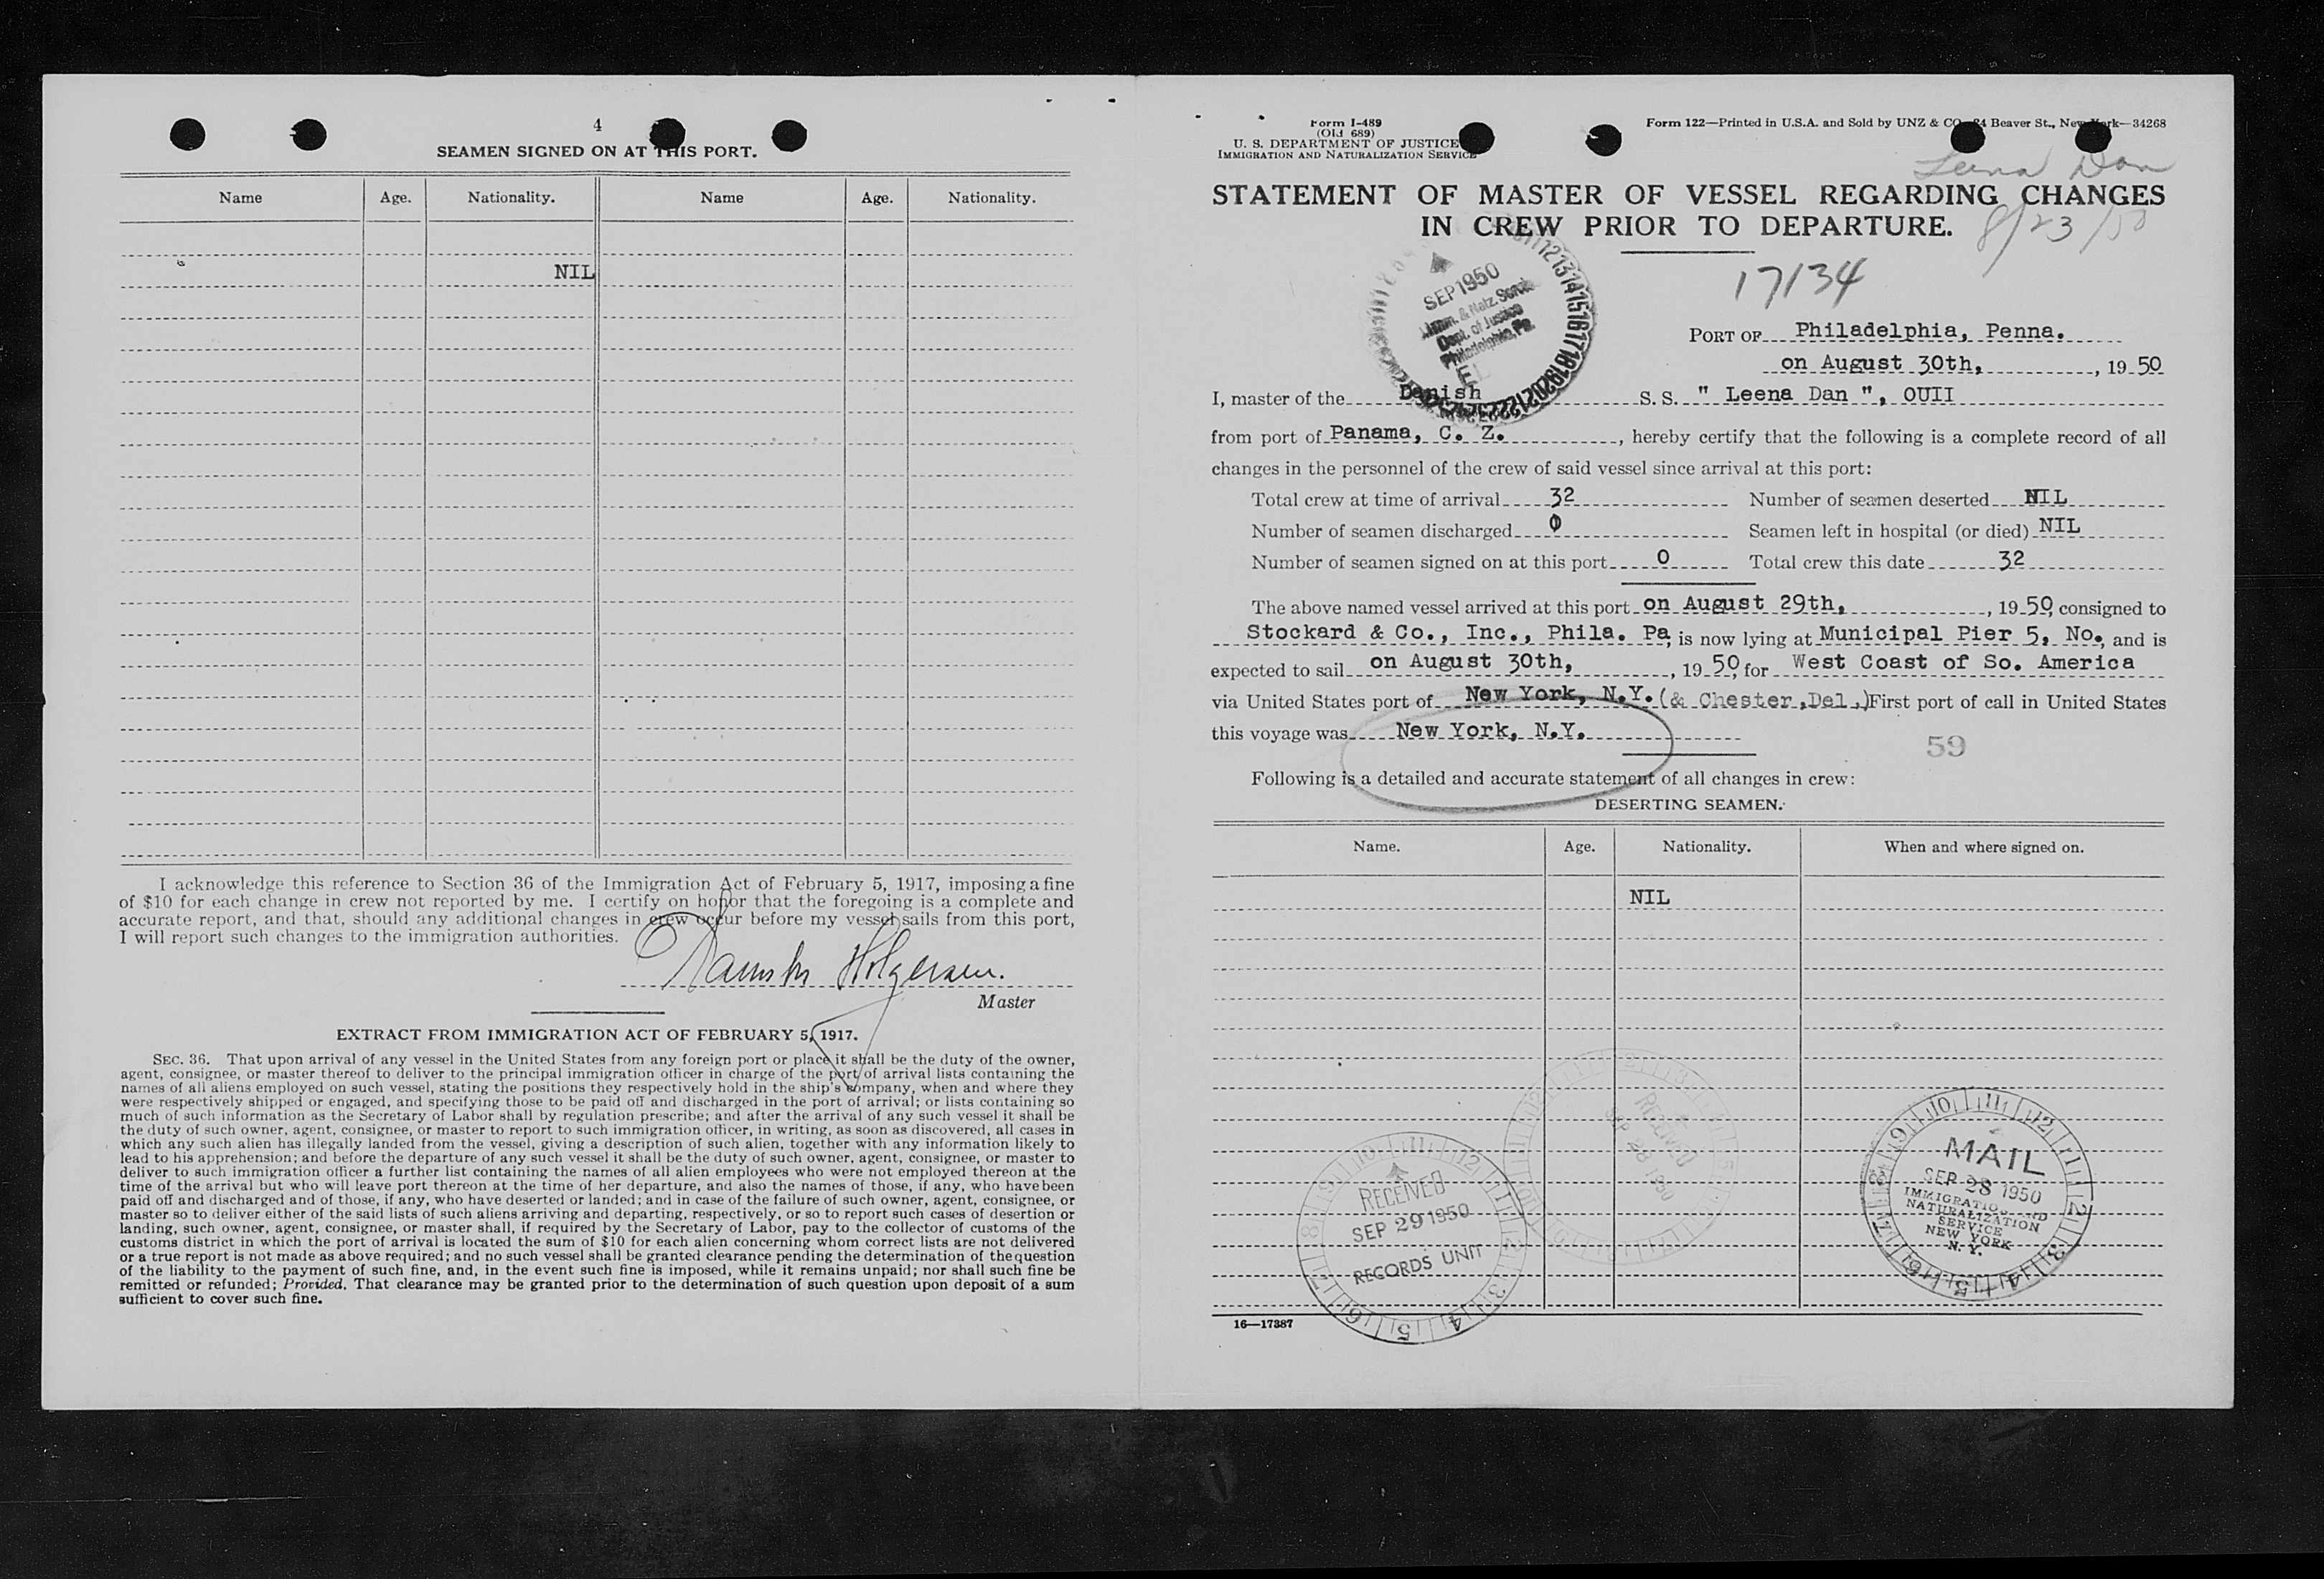 4
SEAMEN SIGNED ON AT THIS PORT.
Name Age. Nationality. Name Age. Nationality.
NIL
I acknowledge this reference to Section 36 of the Immigration Act of February 5, 1917, imposing a fine
of $10 for each change in crew not reported by me. I certify on honor that the foregoing is a complete and
accurate report, and that, should any additional changes in crew occur before my vessel sails from this port,
I will report such changes to the immigration authorities.
Holgersen.
Master
EXTRACT FROM IMMIGRATION ACT OF FEBRUARY 5, 1917.
SEC. 36. That upon arrival of any vessel in the United States from any foreign port or place it shall be the duty of the owner,
agent, consignee, or master thereof to deliver to the principal immigration officer in charge of the port of arrival lists containing the
names of all aliens employed on such vessel, stating the positions they respectively hold in the ship's company, when and where they
were respectively shipped or engaged, and specifying those to be paid off and discharged in the port of arrival; or lists containing so
much of such information as the Secretary of Labor shall by regulation prescribe; and after the arrival of any such vessel it shall be
the duty of such owner, agent, consignee, or master to report to such immigration officer, in writing, as soon as discovered, all cases in
which any such alien has illegally landed from the vessel, giving a description of such alien, together with any information likely to
lead to his apprehension; and before the departure of any such vessel it shall be the duty of such owner, agent, consignee, or master to
deliver to such immigration officer a further list containing the names of all alien employees who were not employed thereon at the
time of the arrival but who will leave port thereon at the time of her departure, and also the names of those, if any, who have been
paid off and discharged and of those, if any, who have deserted or landed; and in case of the failure of such owner, agent, consignee, or
master so to deliver either of the said lists of such aliens arriving and departing, respectively, or so to report such cases of desertion or
landing, such owner, agent, consignee, or master shall, if required by the Secretary of Labor, pay to the collector of customs of the
customs district in which the port of arrival is located the sum of $10 for each alien concerning whom correct lists are not delivered
or a true report is not made as above required; and no such vessel shall be granted clearance pending the determination of the question
of the liability to the payment of such fine, and, in the event such fine is imposed, while it remains unpaid; nor shall such fine be
remitted or refunded; Provided, That clearance may be granted prior to the determination of such question upon deposit of a sum
sufficient to cover such fine.
Form I-489
(Old 689)
U. S. DEPARTMENT OF JUSTICE
IMMIGRATION AND NATURALIZATION SERVICE
Form 122—Printed in U.S.A. and Sold by UNZ & CO. 24 Beaver St., New York—34268
Leena Dan
STATEMENT OF MASTER OF VESSEL REGARDING CHANGES
IN CREW PRIOR TO DEPARTURE.
8/23/50
17134
SEP 1950
Immn. & Natz. Service
Dept. of Justice
Philadelphia, Pa.
PORT OF Philadelphia, Penna.
on August 30th, , 19 50
I, master of the Danish S. S. " Leena Dan ", OUII
from port of Panama, C. Z. , hereby certify that the following is a complete record of all
changes in the personnel of the crew of said vessel since arrival at this port:
Total crew at time of arrival 32 Number of seamen deserted NIL
Number of seamen discharged 0 Seamen left in hospital (or died) NIL
Number of seamen signed on at this port 0 Total crew this date 32
The above named vessel arrived at this port on August 29th, , 19 50, consigned to
Stockard & Co., Inc., Phila. Pa, is now lying at Municipal Pier 5, No. and is
expected to sail on August 30th, , 19 50, for West Coast of So. America
via United States port of New York, N.Y. (& Chester,Del.) First port of call in United States
this voyage was New York, N.Y.
59
Following is a detailed and accurate statement of all changes in crew:
DESERTING SEAMEN.
Name. Age. Nationality. When and where signed on.
NIL
RECEIVED
SEP 28 1950
RECEIVED
SEP 29 1950
RECORDS UNIT
MAIL
SEP 28 1950
IMMIGRATION AND
NATURALIZATION
SERVICE
NEW YORK
N. Y.
16—17387